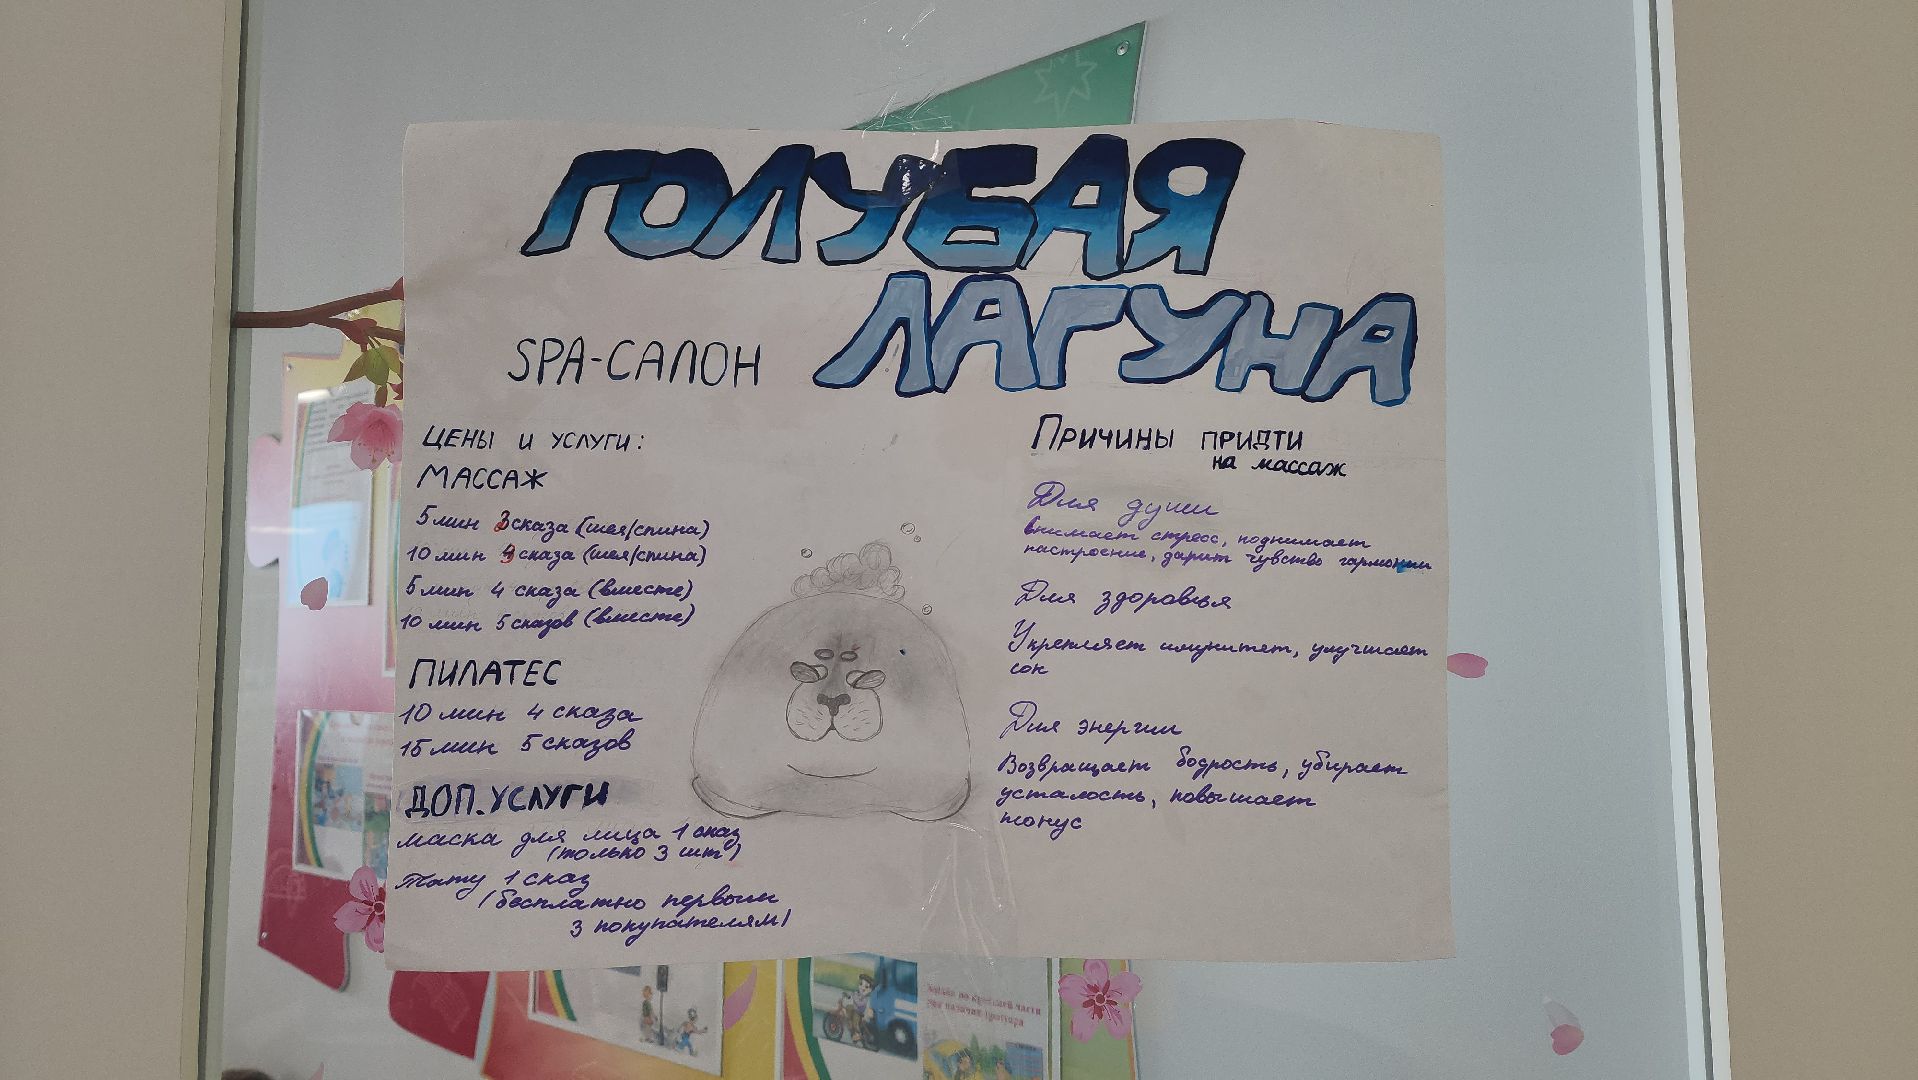 ГОЛУБАЯ
ЛАГУНА
SPA-САЛОН
ЦЕНЫ И УСЛУГИ:
МАССАЖ
5 мин 3 сказа (шея/спина)
10 мин 4 сказа (шея/спина)
5 мин 4 сказа (вместе)
10 мин 5 сказов (вместе)
ПИЛАТЕС
10 мин 4 сказа
15 мин 5 сказов
ДОП.УСЛУГИ
маска для лица 1 сказ
(только 3 шт)
тату 1 сказ
(бесплатно первым
3 покупателям)
ПРИЧИНЫ ПРИДТИ
на массаж
Для души
внимает стресс, поднимает
настроение, дарит чувство гармонии
Для здоровья
Укрепляет имунитет, улучшает
сон
Для энергии
Возвращает бодрость, убирает
усталость, повышает
тонус